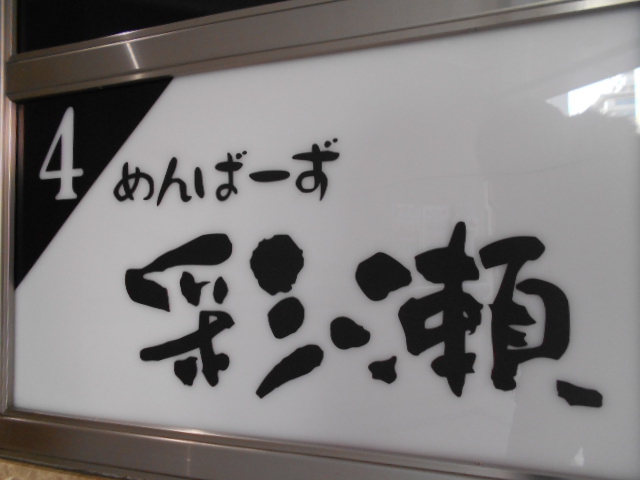 4
めんばーず
彩瀬